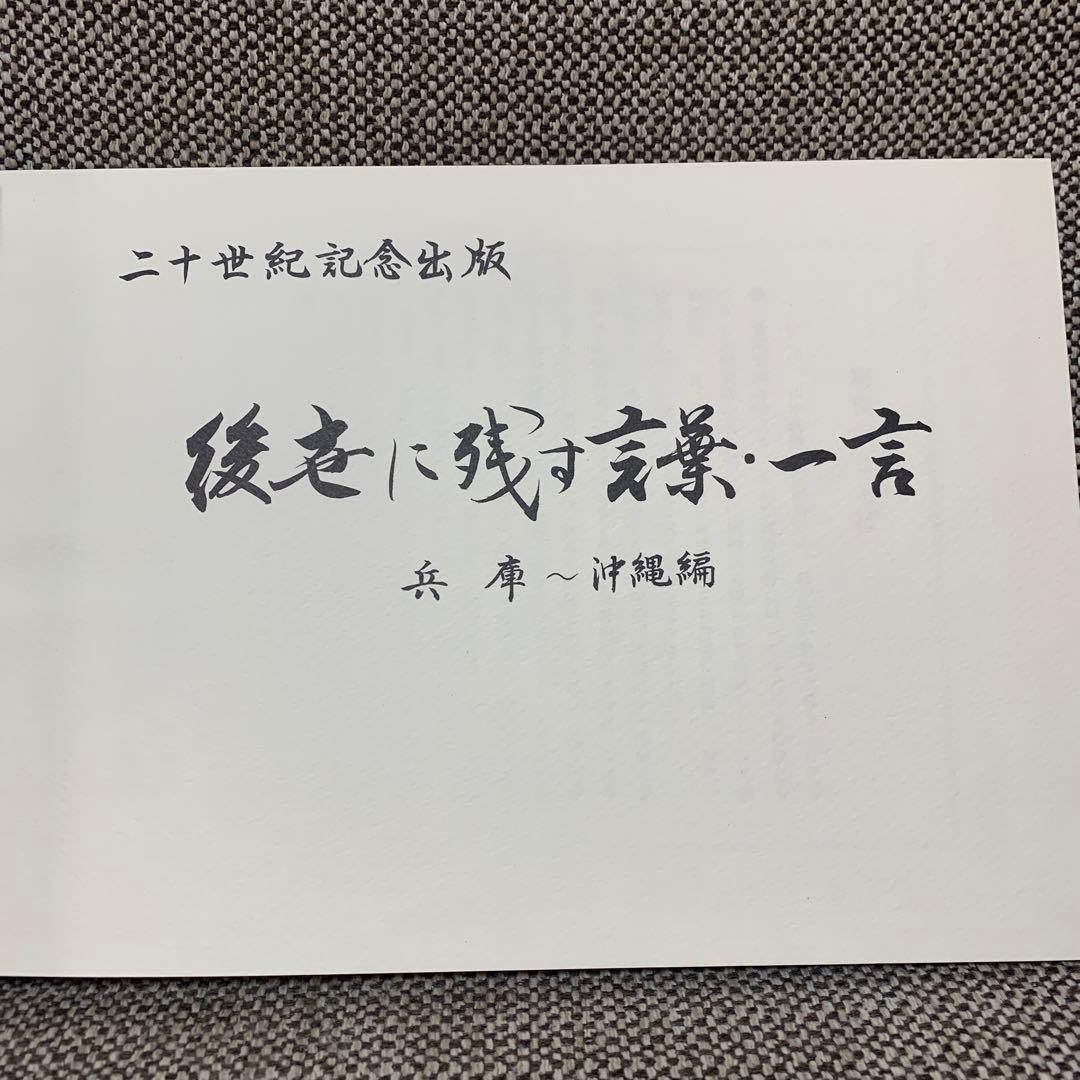 二十世紀記念出版
後世に残す言葉・一言
兵庫～沖縄編